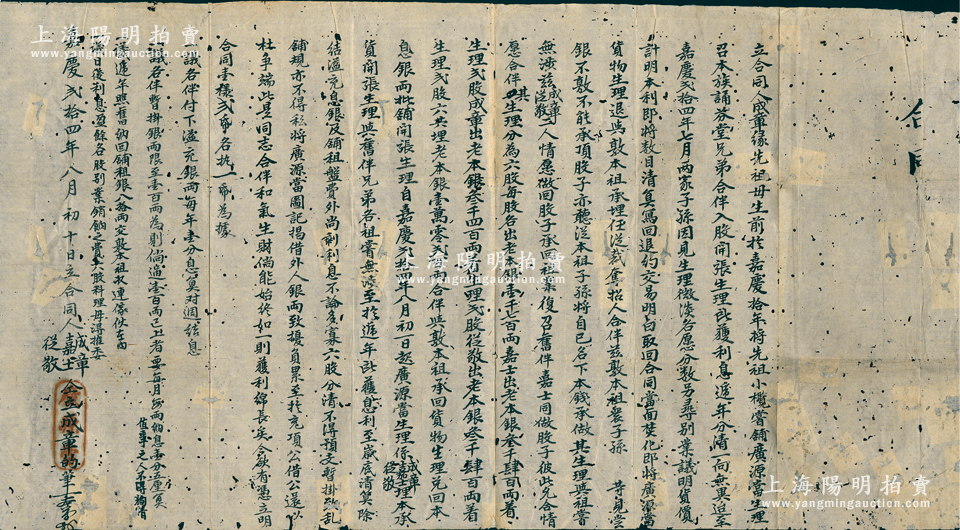 合同
立合同人成章緣先祖毋生前於嘉慶拾年將先祖小欖嘗鋪廣源當生理
召本族誦芬堂兄弟合伴入股開張生理所獲利息遞年分清一向無異迨至
嘉慶弍拾四年七月兩家子孫因見生理微淡各愿分数另尋別業議明貨價
計明本利即將数目清算寫回退約交易明白取回合同當面焚化即將廣源當
貨物生理退與敦本祖承埋任從裁奪招人合伴兹敦本祖衆子孫
銀不敷不能承頂股子亦聽從本祖子孫將自己名下本錢承做其生理與祖嘗
無涉兹成章從敬人情愿做回股子承復召舊伴嘉士同做股子彼此允合情
愿合伴其生理分為六股每股各出老本銀壹千七百兩嘉士出老本銀叁千肆百兩着
生理弍股成章出老本銀叁千四百兩着生理弍股從敬出老本銀叁千肆百兩着
生理弍股六共埋老本銀壹萬零弍百兩合伴與敦本祖承回貨物生理兑回本
息銀兩此鋪開張生理自嘉慶弍拾四年八月初一日起廣源當生理係成章嘉士從敬生理本承
貨開張生理與舊伴兄弟各祖嘗無涉至於遞年所獲息利至歲底清算除
結溢充息銀及鋪租盤費外尚剩利息不論多寡六股分清不得預支暫掛致乱
鋪規亦不得私將廣源當圖記揭借外人銀兩致擾負累至於充項公借公還以
杜爭端此是同志合伴和氣生財倘能始終如一則獲利綿長矣今欲有憑立明
合同壹樣弍帋各执一帋為據
一議各伴付下溢充銀兩每年壹分息算對週結息
一議各伴暫掛銀兩限至壹百兩為則倘過壹百兩已上者要每月每兩納息壹分
值事之人不得徇情
遞年照舊納回鋪租銀八拾兩交敦本祖收連傢伙在內
日後利息盈餘各股別業
嘉慶弍拾四年八月初十日立合同人成章嘉士從敬
仝立成章的筆
上海陽明拍賣
www.yangmingauction.com
上海陽明拍賣
www.yangmingauction.com
上海陽明拍賣
www.yangmingauction.com
上海陽明拍賣
www.yangmingauction.com